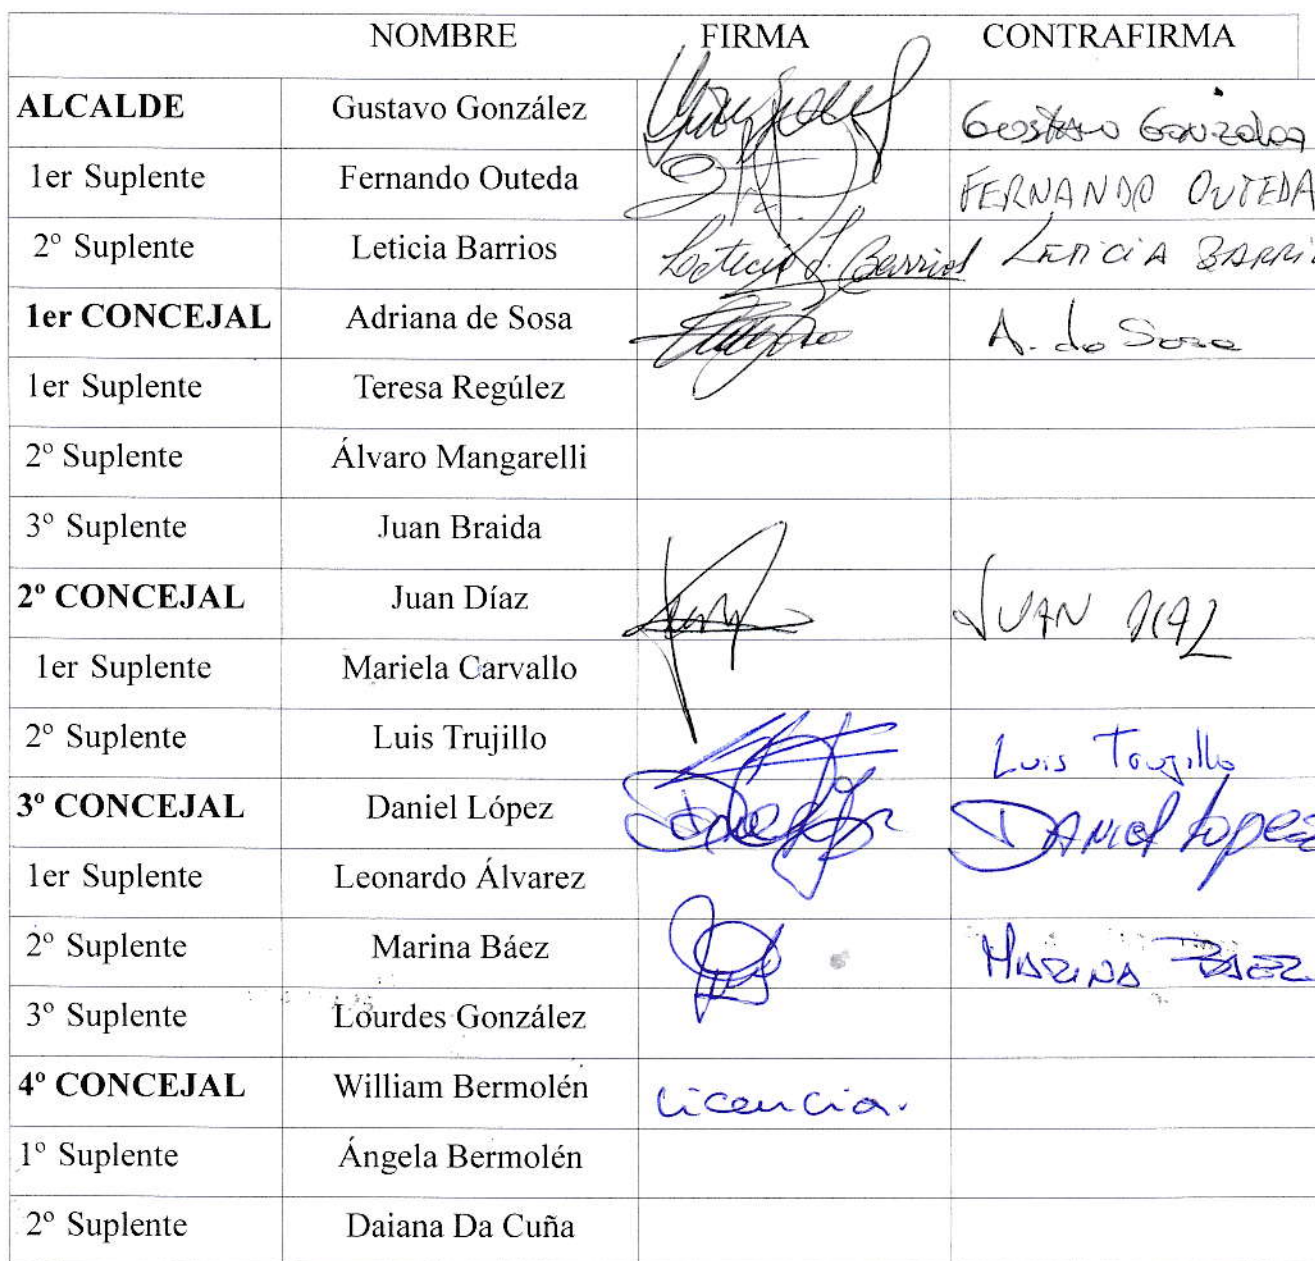 NOMBRE FIRMA CONTRAFIRMA
ALCALDE Gustavo González Gustavo González
1er Suplente Fernando Outeda FERNANDO OUTEDA
2º Suplente Leticia Barrios Leticia J. Barrios LETICIA BARRI
1er CONCEJAL Adriana de Sosa A. de Sosa
1er Suplente Teresa Regúlez
2º Suplente Álvaro Mangarelli
3º Suplente Juan Braida
2º CONCEJAL Juan Díaz JUAN DIAZ
1er Suplente Mariela Carvallo
2º Suplente Luis Trujillo Luis Trujillo
3º CONCEJAL Daniel López DANIEL Lopez
1er Suplente Leonardo Álvarez
2º Suplente Marina Báez MARINA BAEZ
3º Suplente Lourdes González
4º CONCEJAL William Bermolén Licencia.
1º Suplente Ángela Bermolén
2º Suplente Daiana Da Cuña